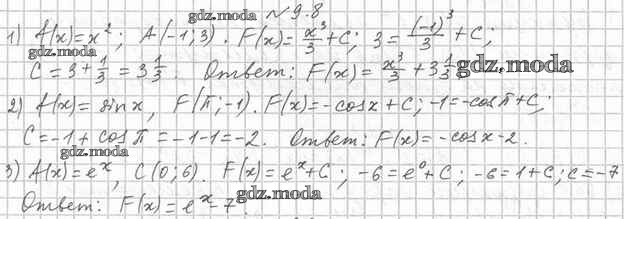 gdz.moda
№ 9.8
1) f(x)=x²; A(-1;3). F(x)=x³/3+C; 3=(-1)³/3+C;
gdz.moda
C=3+1/3=3 1/3. Ответ: F(x)=x³/3+3 1/3
gdz.moda
2) f(x)=sinx, F(π;-1). F(x)=-cosx+C; -1=-cosπ+C;
C=-1+cosπ=-1-1=-2. Ответ: F(x)=-cosx-2.
gdz.moda
3) f(x)=eˣ, C(0;6). F(x)=eˣ+C; -6=e⁰+C; -6=1+C; c=-7
gdz.moda
Ответ: F(x)=eˣ-7.